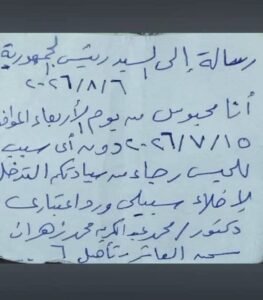 رسالة إلى السيد رئيس الجمهورية
٢٠٢٦/٨/٦
أنا محبوس من يوم الأربعاء الموافق
٢٠٢٦/٧/١٥ دون أى سبب
للحبس رجاء من سيادتكم التدخل
لإخلاء سبيلى ورد اعتبارى
دكتور / محمد محمد زهران
سجن العاشر تأهيل ٦